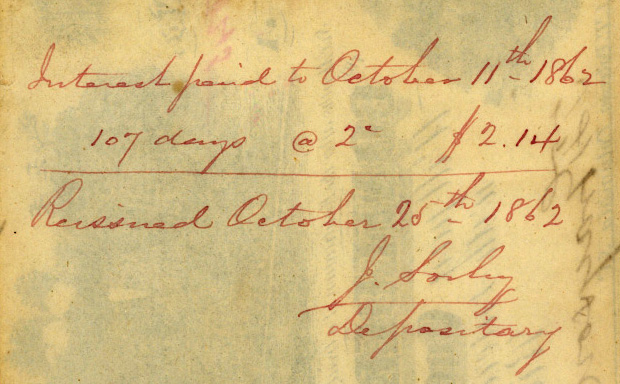 Interest paid to October 11th 1862
107 days @ 2c $2.14
Reissued October 25th 1862
J. Sorley
Depositary